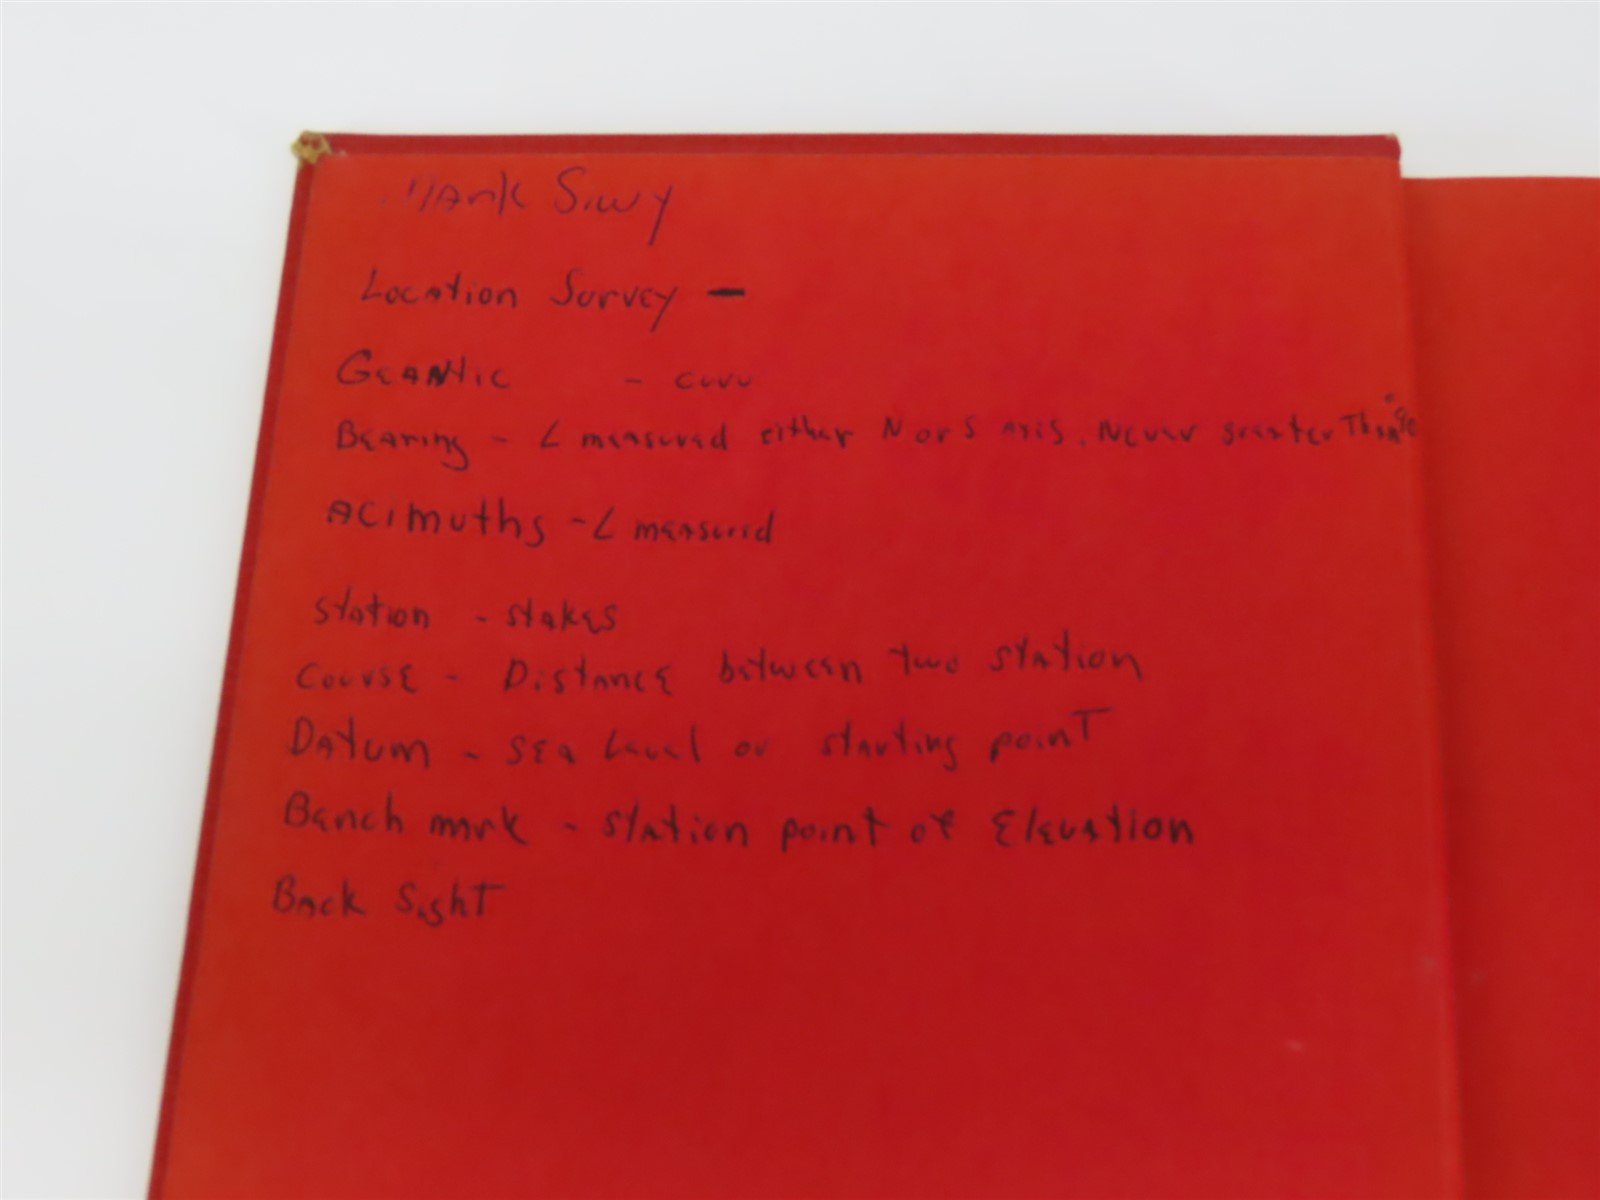 Mark Siwy
Location Survey -
GEANtic - curv
Bearing - ∠ measured either N or S axis. Never greater Than 90
Acimuths - ∠ measured
Station - stakes
Course - Distance between two station
Datum - sea Level or starting point
Bench mark - station point of Elevation
Back Sight